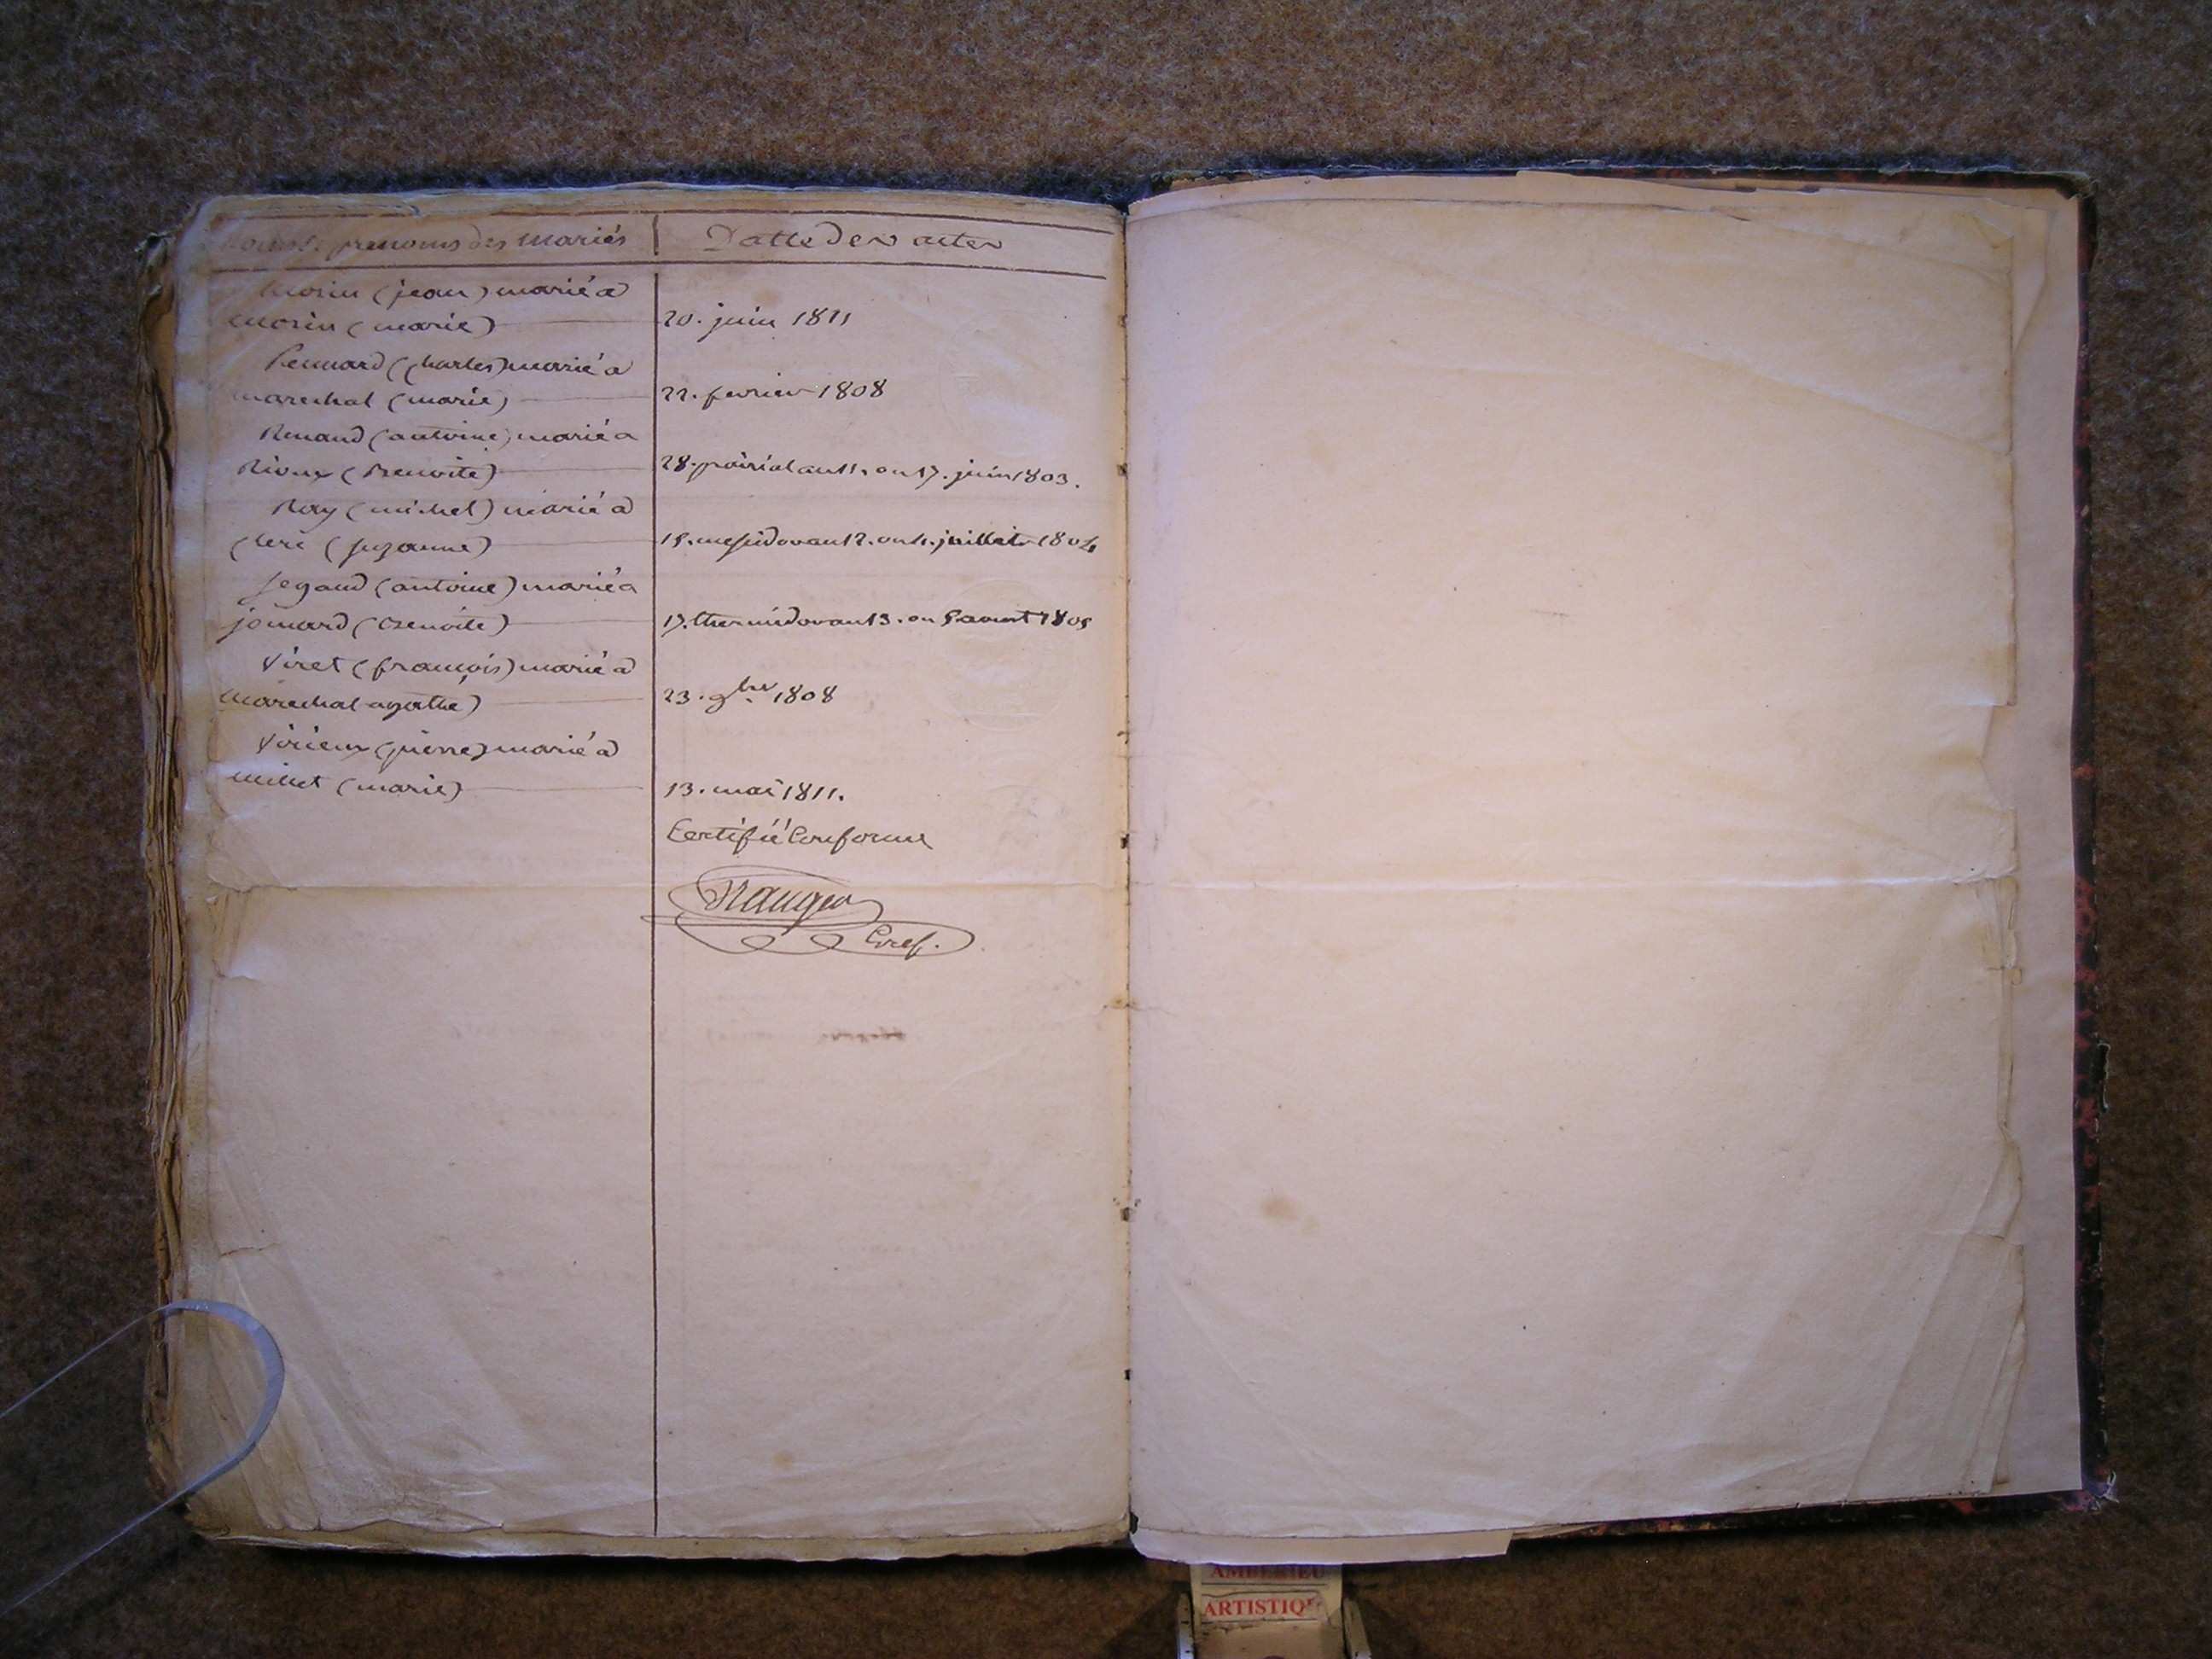 Noms & prenoms des Mariés | Datte des actes
Morin (jean) marié a
Morin (marie) 20. juin 1811
Pennard (Charles) marié a
marechal (marie) 22. fevrier 1808
Renaud (antoine) marié a
Rioux (Benoite) 28. prairial an 11. ou 17. juin 1803.
Ray (michel) marié a
Cleri (suzanne) 15. messidor an 12. ou 4. juillet 1804
Segaud (antoine) marié a
jomard (Benoite) 17. thermidor an 13. ou 5 aoust 1805
Viret (françois) marié a
Marechal agathe) 23. 9bre 1808
Virieux (pierre) marié a
millet (marie) 13. mai 1811.
Certifié Conforme
Gref.
AMBERIEU
ARTISTIQ